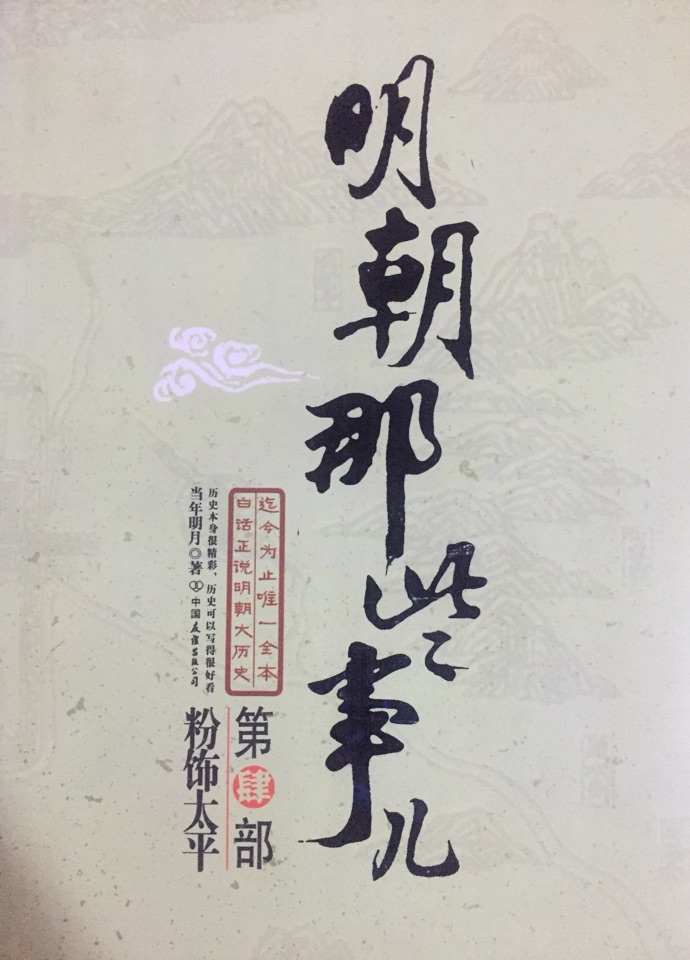 明朝那些事儿
迄今为止唯一全本
白话正说明朝大历史
历史本身很精彩，历史可以写得很好看
当年明月◎著 中国友谊出版公司
第肆部
粉饰太平